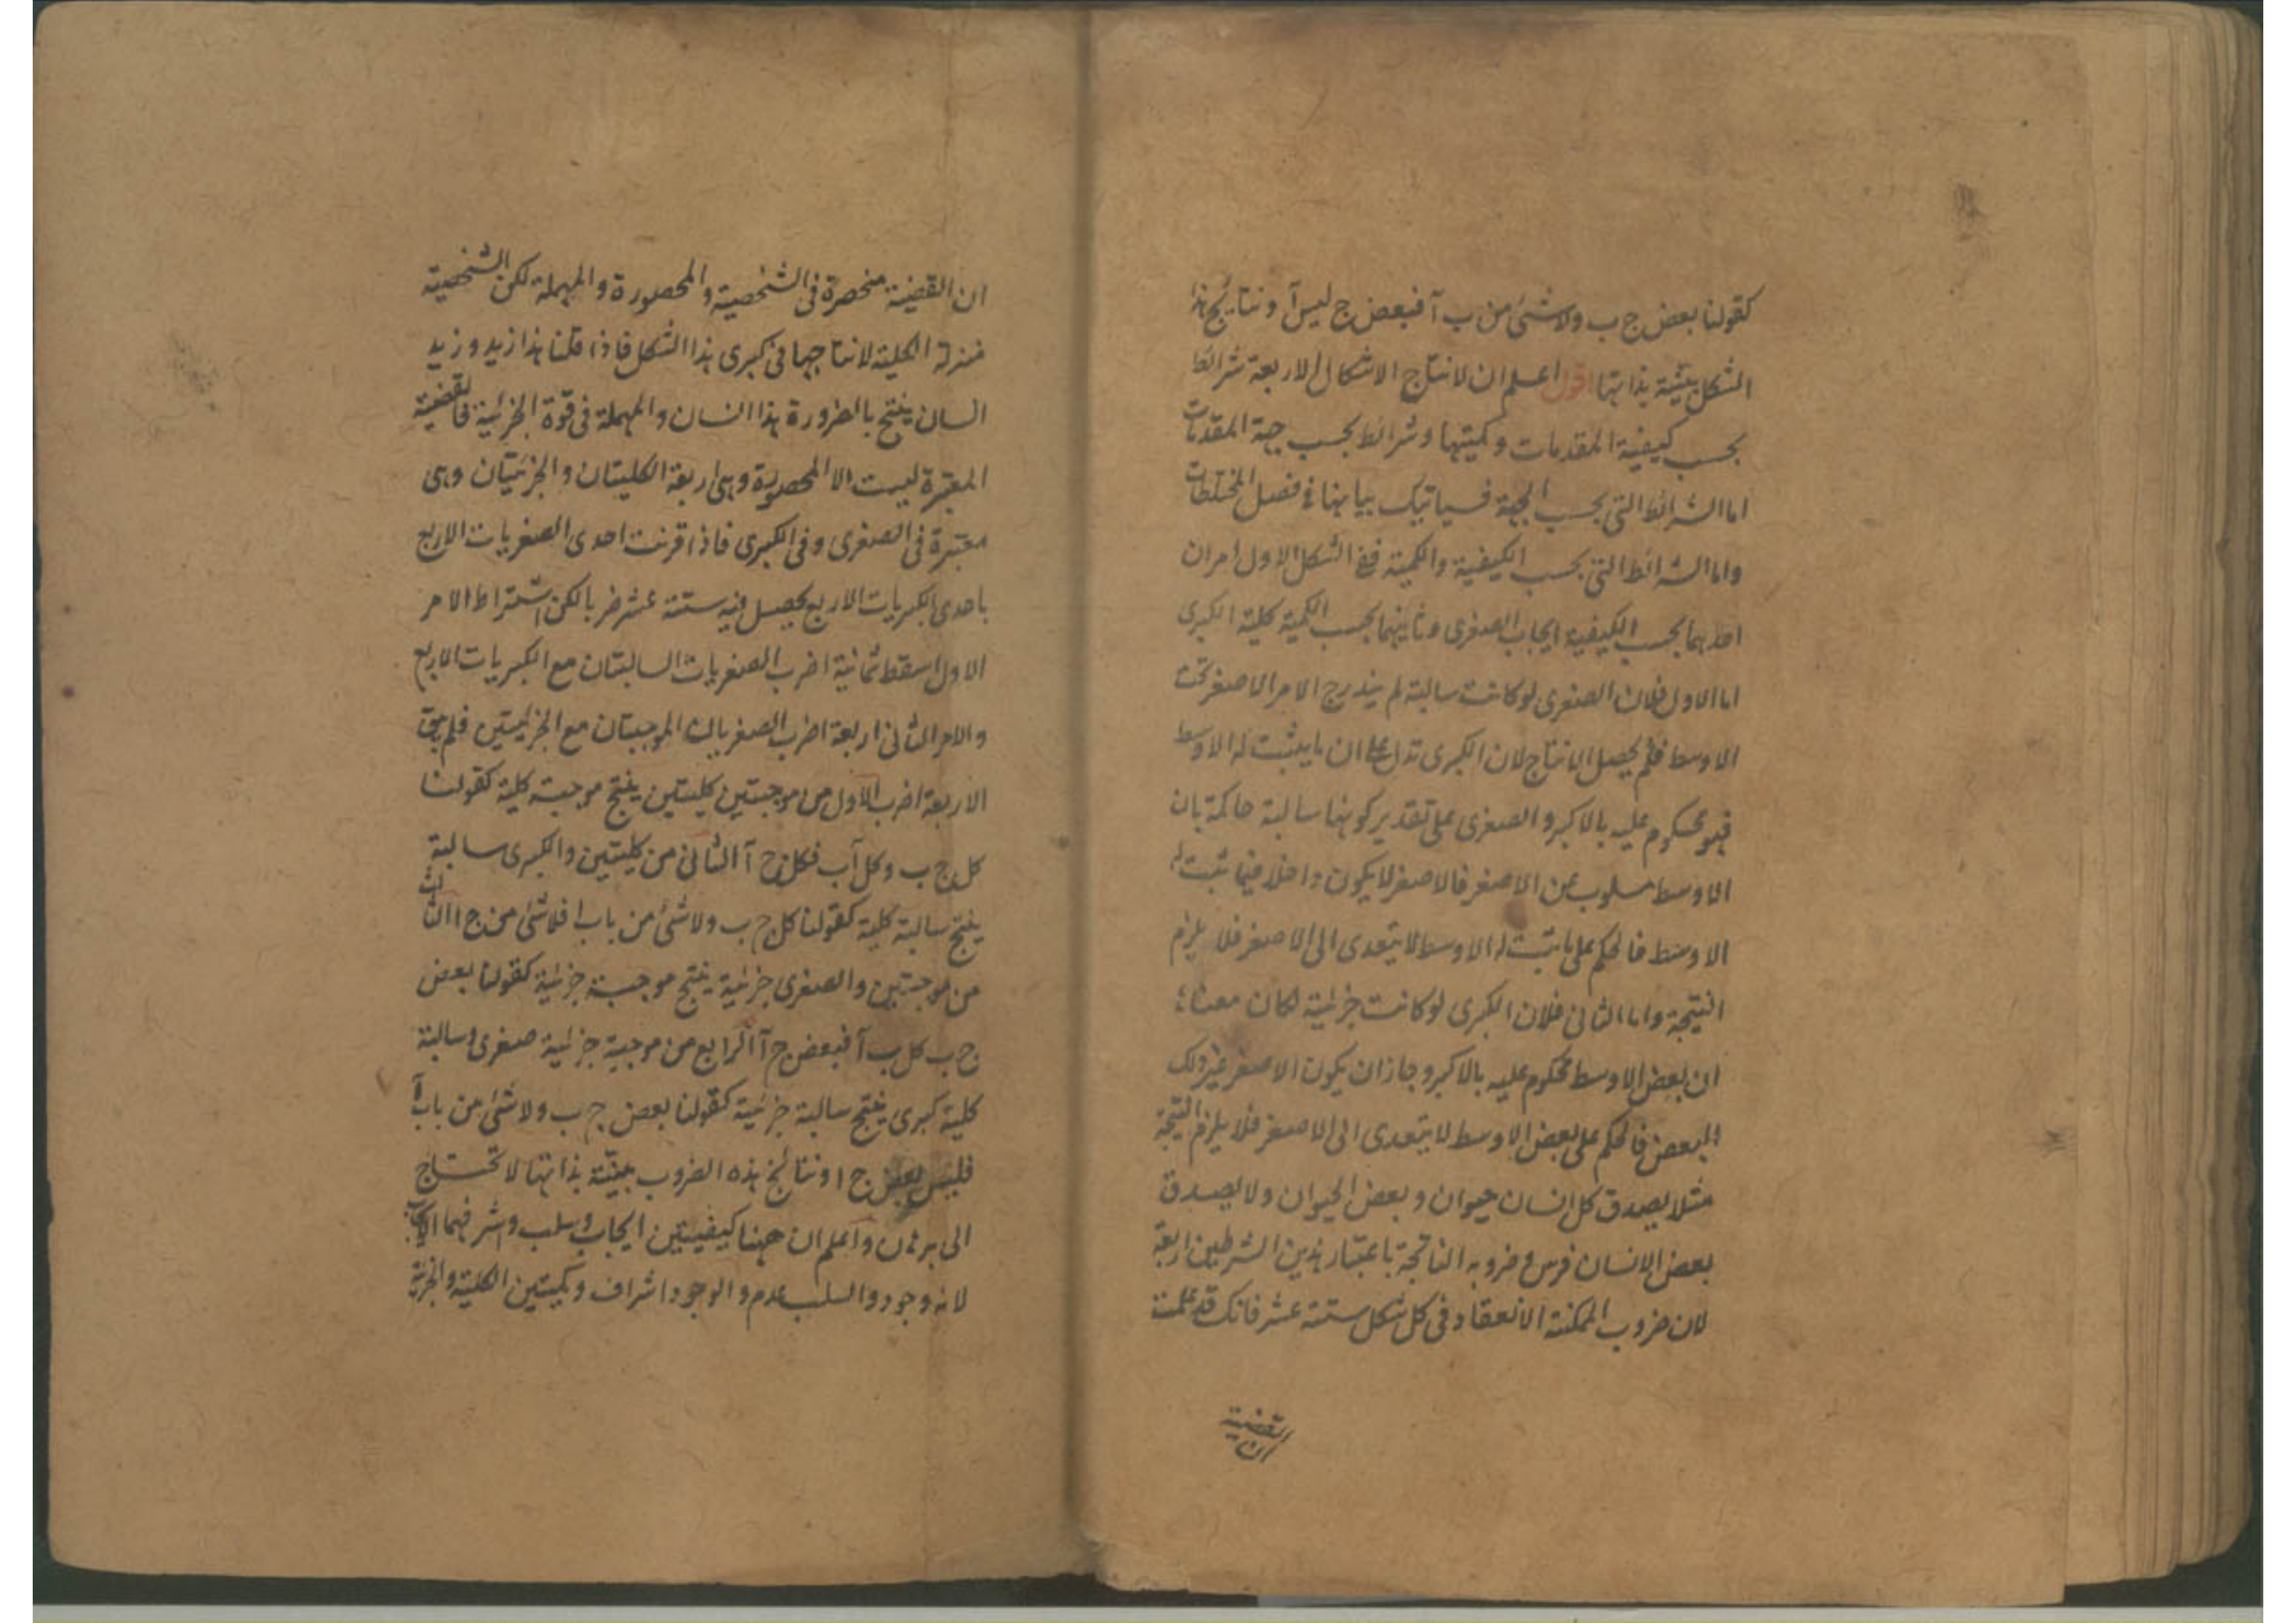 كقولنا بعض ج ب ولا شئ من ب آ فبعض ج ليس آ ونتايج هذا
الشكل بينة بذاتها اقول اعلم ان لانتاج الاشكال الاربعة شرائط
بحسب كيفية المقدمات وكميتها وشرائط بحسب جهة المقدمات
اما الشرائط التى بحسب الجهة فسياتيك بيانها فى فصل المختلطات
واما الشرائط التى بحسب الكيفية والكمية ففى الشكل الاول امران
احدهما بحسب الكيفية ايجاب الصغرى وثانيهما بحسب الكمية كلية الكبرى
اما الاول فلان الصغرى لو كانت سالبة لم يندرج الامر الاصغر تحت
الاوسط فلم يحصل الانتاج لان الكبرى تدل على ان ما يثبت له الاوسط
فهو محكوم عليه بالاكبر والصغرى على تقدير كونها سالبة حاكمة بان
الاوسط مسلوب عن الاصغر فالاصغر لا يكون داخلا فيما ثبت له
الاوسط فالحكم على ما ثبت له الاوسط لا يتعدى الى الاصغر فلا يلزم
النتيجة واما الثانى فلان الكبرى لو كانت جزئية لكان معناه
ان بعض الاوسط محكوم عليه بالاكبر وجاز ان يكون الاصغر غير ذلك
البعض فالحكم على بعض الاوسط لا يتعدى الى الاصغر فلا يلزم النتيجة
مثلا يصدق كل انسان حيوان وبعض الحيوان ولا يصدق
بعض الانسان فرس وضروبه الناتجة باعتبار هذين الشرطين اربعة
لان ضروب الممكنة الانعقاد فى كل شكل ستة عشر فانك قد علمت
ان القضية
ان القضية منحصرة فى الشخصية والمحصورة والمهملة لكن الشخصية
منزلة الكلية لانتاجها فى كبرى هذا الشكل فاذا قلنا هذا زيد وزيد
انسان ينتج بالضرورة هذا انسان والمهملة فى قوة الجزئية فالقضية
المعتبرة ليست الا المحصورة وهى اربعة الكليتان والجزئيتان وهى
معتبرة فى الصغرى وفى الكبرى فاذا قرنت احدى الصغريات الاربع
باحدى الكبريات الاربع يحصل فيه ستة عشر ضربا لكن اشتراط الامر
الاول اسقط ثمانية اضرب الصغريات السالبتان مع الكبريات الاربع
والامر الثانى اربعة اضرب الصغريات الموجبتان مع الجزئيتين فلم يبق
الاربعة اضرب الاول من موجبتين كليتين ينتج موجبة كلية كقولنا
كل ج ب وكل آب فكل ج آ الثانى من كليتين والكبرى سالبة
ينتج سالبة كلية كقولنا كل ج ب ولا شئ من باب ا فلا شئ من ج ا الثالث
من موجبتين والصغرى جزئية ينتج موجبة جزئية كقولنا بعض
ج ب كل ب آ فبعض ج آ الرابع من موجبة جزئية صغرى وسالبة
كلية كبرى ينتج سالبة جزئية كقولنا بعض ج ب ولا شئ من باب آ
فليس بعض ج ا ونتائج هذه الضروب بينة بذاتها لا تحتاج
الى برهان واعلم ان ههنا كيفيتين ايجاب وسلب واشرفهما الايجاب
لانه وجود والسلب عدم والوجود اشراف وكميتين الكلية والجزئية